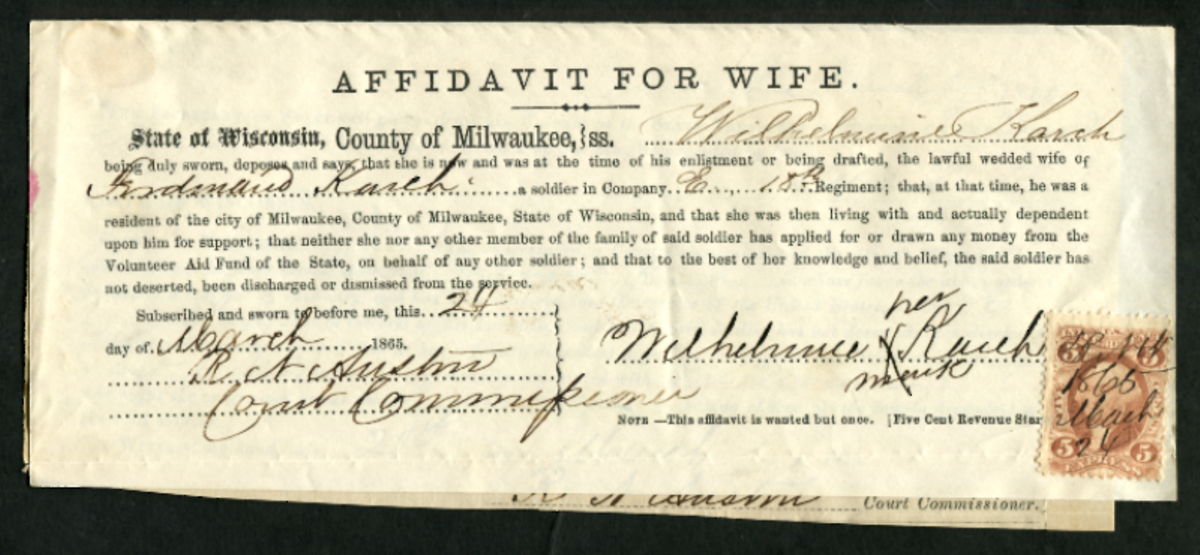 AFFIDAVIT FOR WIFE.
State of Wisconsin, County of Milwaukee, }ss. Wilhelmine Karch
being duly sworn, deposes and says, that she is now and was at the time of his enlistment or being drafted, the lawful wedded wife of
Ferdinand Karch a soldier in Company E, 18th Regiment; that, at that time, he was a
resident of the city of Milwaukee, County of Milwaukee, State of Wisconsin, and that she was then living with and actually dependent
upon him for support; that neither she nor any other member of the family of said soldier has applied for or drawn any money from the
Volunteer Aid Fund of the State, on behalf of any other soldier; and that to the best of her knowledge and belief, the said soldier has
not deserted, been discharged or dismissed from the service.
Subscribed and sworn to before me, this 24
day of March 1865.
R. N. Austin
Court Commissioner
her
Wilhelmine X Karch
mark
NOTE —This affidavit is wanted but once. [Five Cent Revenue Star
1865
March
24
5 5
EXPRESS
R N Austin Court Commissioner.